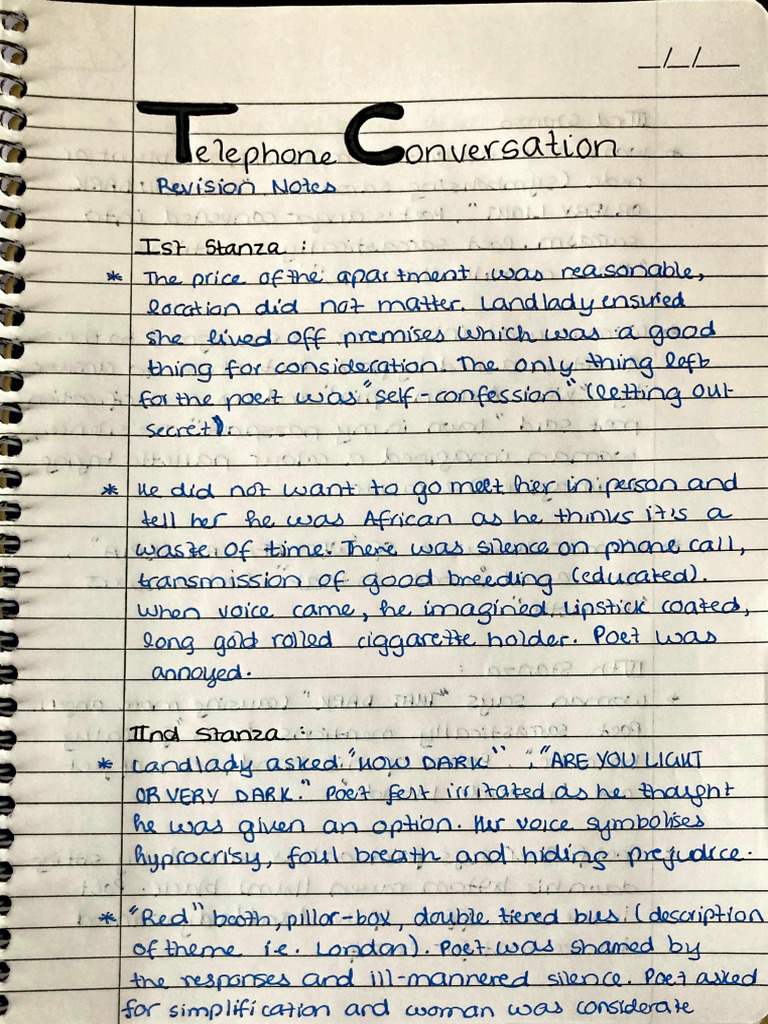 __/__/__
Telephone Conversation
Revision Notes
Ist Stanza :
* The price of the apartment was reasonable,
location did not matter. Landlady ensured
she lived off premises which was a good
thing for consideration. The only thing left
for the poet was "self-confession" (letting out
secret).
* He did not want to go meet her in person and
tell her he was African as he thinks it's a
waste of time. There was silence on phone call,
transmission of good breeding (educated).
When voice came, he imagined lipstick coated,
long gold rolled ciggarette holder. Poet was
annoyed.
IInd Stanza :
* Landlady asked "HOW DARK" , "ARE YOU LIGHT
OR VERY DARK." Poet felt irritated as he thought
he was given an option. Her voice symbolises
hyprocrisy, foul breath and hiding prejudice.
* "Red" booth, pillor-box, double tiered bus (description
of theme i.e. London). Poet was shamed by
the responses and ill-mannered silence. Poet asked
for simplification and woman was considerate